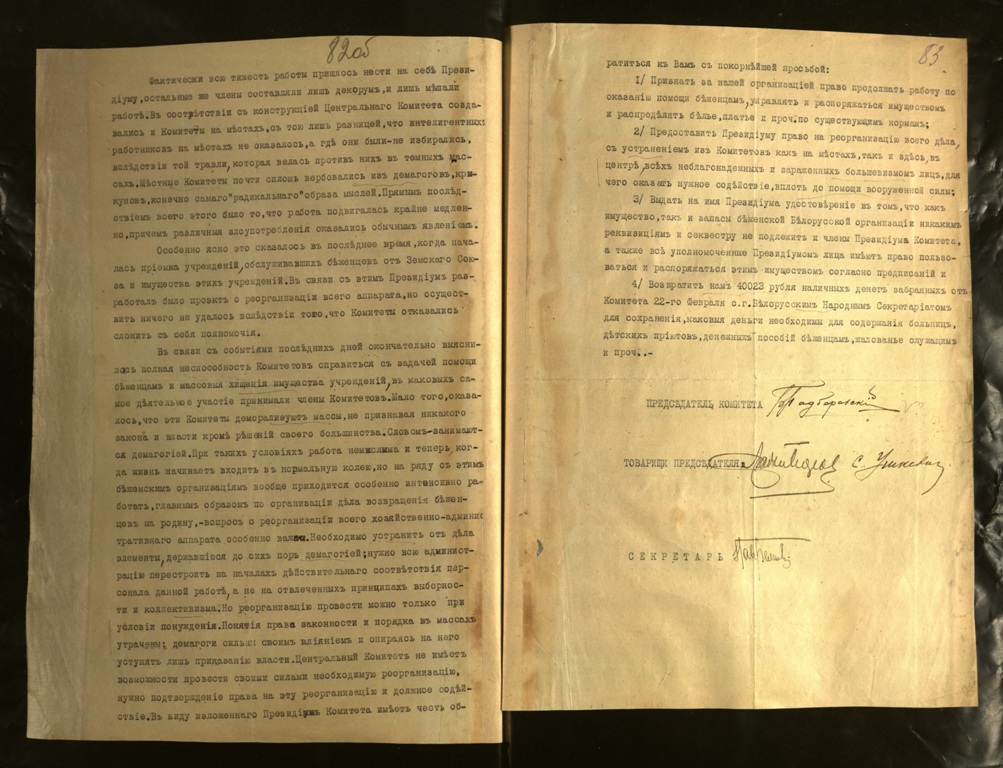 82об
Фактически всю тяжесть работы пришлось нести на себѣ Прези-
діуму,остальные же члены составляли лишь декорумъ,и лишь мѣшали
работѣ.Въ соотрѣтствіи съ конструкціей Центральнаго Комитета созда-
вались и Комитеты на мѣстахъ,съ тою лишь разницей,что интелигентныхъ
работниковъ на мѣстахъ не оказалось,а гдѣ они были-не избирались,
вслѣдствіи той травли,которая велась противъ нихъ въ темныхъ мас-
сахъ.Мѣстные Комитеты почти сплошь вербовались изъ демагоговъ,кры-
куновъ,конечно самаго"радикальнаго"образа мыслей.Прямымъ послѣд-
ствіемъ всего этого было то,что работа подвигалась крайне медлен-
но,причемъ различныя злоупотребленія оказались обычнымъ явленіемъ.
Особенно ясно это сказалось въ послѣднее время,когда нача-
лась пріемка учрежденій,обслуживавшихъ бѣженцевъ отъ Земскаго Сою-
за и имущества этихъ учрежденій.Въ связи съ этимъ Президіумъ раз-
работалъ было проэктъ о реорганизаціи всего аппарата,но осущест-
вить ничего не удалось вслѣдствіи того,что Комитеты отказались
сложить съ себя полномочія.
Въ связи съ событіями послѣднихъ дней окончательно выясни-
лось полная неспособность Комитетовъ справиться съ задачей помощи
бѣженцамъ и массовыя хищенія имущества учрежденій,въ каковыхъ са-
мое дѣятельное участіе принимали члены Комитетовъ.Мало того,оказа-
лось,что эти Комитеты деморализуютъ массы,не признавая никакого
закона и власти кромѣ рѣшеній своего большинства.Словомъ-занимают-
ся демагогіей.При такихъ условіяхъ работа немыслима и теперь,ког-
да жизнь начинаетъ входить въ нормальную колею,но на ряду съ этимъ
бѣженскимъ организаціямъ вообще приходится особенно интенсивно ра-
ботать,главнымъ образомъ по организаціи дѣла возвращенія бѣжен-
цевъ на родину,-вопросъ о реорганизаціи всего хозяйственно-админис
тративнаго аппарата особенно важенъ.Необходимо устранить отъ дѣла
элементы,державшіеся до сихъ поръ демагогіей;нужно всю админист-
рацію перестроить на началахъ дѣйствительнаго соотвѣтствія пер-
сонала данной работѣ,а не на отвлеченныхъ принципахъ выборнос-
ти и коллективизма.Но реорганизацію провести можно только при
условіи понужденія.Понятія права законности и порядка въ массахъ
утрачены; демагоги сильны своимъ вліяніемъ и опираясь на него
уступятъ лишь приказанію власти.Центральный Комитетъ не имѣетъ
возможности провести своими силами необходимую реорганизацію,
нужно подтвержденіе права на эту реорганизацію и должное содѣй-
ствіе.Въ виду изложеннаго Президіумъ Комитета имѣетъ честь об-
83.
ратиться къ Вамъ съ покорнѣйшей просьбой:
I/ Признать за нашей организаціей право продолжать работу по
оказанію помощи бѣженцамъ,управлять и распоряжаться имуществомъ
и распредѣлять бѣлье,платье и проч.по существующимъ нормамъ;
2/ Предоставить Президіуму право на реорганизацію всего дѣла,
съ устраненіемъ изъ Комитетовъ какъ на мѣстахъ,такъ и здѣсь,въ
центрѣ,всѣхъ неблагонадежныхъ и зараженныхъ большевизмомъ лицъ,для
чего оказать нужное содѣйствіе,вплоть до помощи вооруженной силы;
3/ Выдать на имя Президіума удостовѣреніе въ томъ,что какъ
имущество,такъ и запасы бѣженской Бѣлорусской организаціи никакимъ
реквизиціямъ и секвестру не подлежитъ и члены Президіума Комитета,
а также всѣ уполномоченные Президіумомъ лица имѣютъ право пользо-
ваться и распоряжаться этимъ имуществомъ согласно предписаній и
4/ Возвратить намъ 40023 рубля наличныхъ денегъ забранныхъ отъ
Комитета 22-го Февраля с.г.Бѣлорусскимъ Народнымъ Секретаріатомъ
для сохраненія,каковыя деньги необходимы для содержанія больницъ,
дѣтскихъ пріютовъ,денежныхъ пособій бѣженцамъ,жалованье служащимъ
и проч..-
ПРЕДСѢДАТЕЛЬ КОМИТЕТА
ТОВАРИЩИ ПРЕДСѢДАТЕЛЯ
С Е К Р Е Т А Р Ь